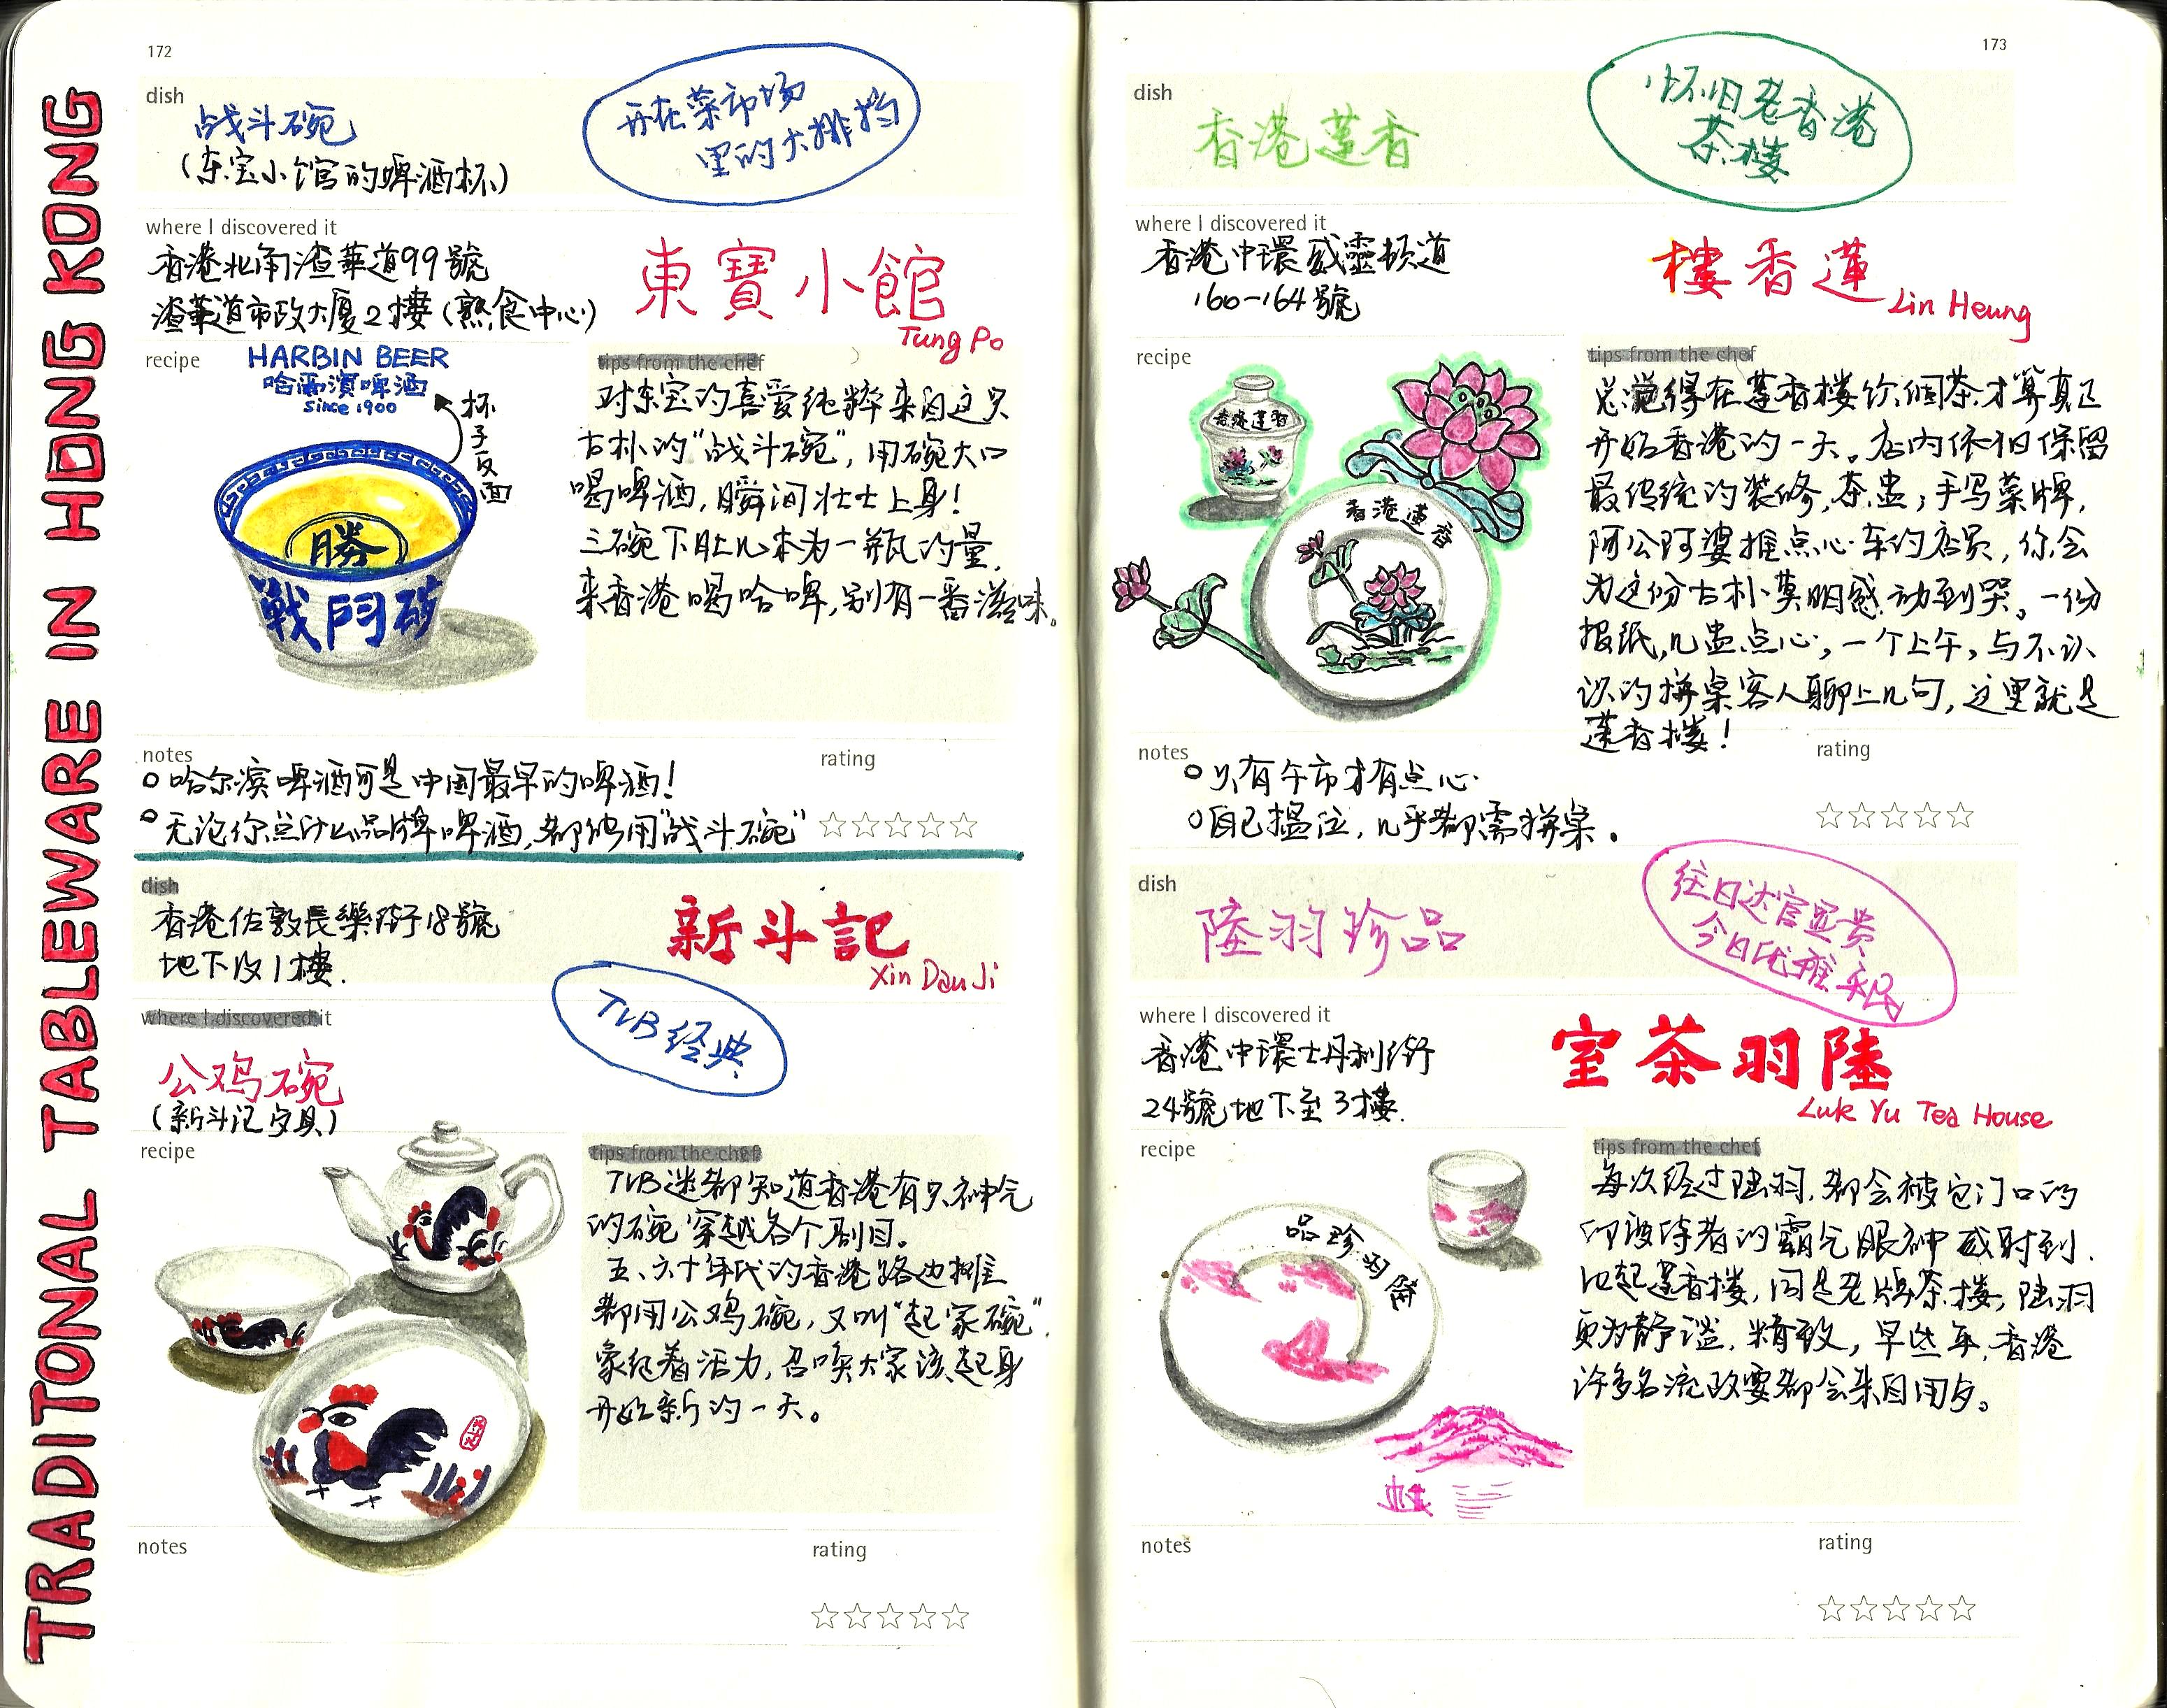 TRADITONAL TABLEWARE IN HONG KONG
172
dish
战斗碗
(东宝小馆的啤酒杯)
开在菜市场
里的大排档
where I discovered it
香港北角渣華道99號
渣華道市政大厦2樓(熟食中心)
東寶小館
Tung Po
recipe
HARBIN BEER
哈爾濱啤酒
since 1900
杯子反面
勝
戰鬥碗
tips from the chef
对东宝的喜爱纯粹来自这只
古朴的“战斗碗”,用碗大口
喝啤酒,瞬间壮士上身!
三碗下肚几本为一瓶的量.
来香港喝哈啤,别有一番滋味。
notes
哈尔滨啤酒可是中国最早的啤酒!
无论你点什么品牌啤酒,都使用“战斗碗”
rating
dish
香港佐敦長樂街18號
地下及1樓.
新斗記
Xin Dau Ji
where I discovered it
TVB经典
公鸡碗
(新斗记夕具)
recipe
tips from the chef
TVB迷都知道香港有只神气
的碗穿越各个剧目。
五、六十年代的香港路边摊
都用公鸡碗,又叫“起家碗”.
象征着活力,召唤大家该起身
开始新的一天。
notes
rating
173
dish
香港蓮香
怀旧老香港
茶楼
where I discovered it
香港中環威靈頓道
160-164號
樓香蓮
Lin Heung
recipe
香港蓮香
香港蓮香
tips from the chef
总觉得在莲香楼饮個茶才算真正
开始香港的一天。店内依旧保留
最传统的装修,茶盅,手写菜牌,
阿公阿婆推点心车的店员,你会
为这份古朴莫明感动到哭。一份
报纸,几盅点心,一个上午,与不认
识的拼桌客人聊上几句,这里就是
莲香楼!
notes
只有午市才有点心
自己揾位,几乎都需拼桌.
rating
dish
陸羽珍品
往日达官显贵
今日优雅
where I discovered it
香港中環士丹利街
24號地下至3樓.
室茶羽陸
Luk Yu Tea House
recipe
品珍羽陸
tips from the chef
每次经过陆羽,都会被它门口的
印度侍者的霸气眼神威射到.
比起莲香楼,同是老牌茶楼,陆羽
更为静谧,精致,早些年,香港
许多名流政要都会来自用夕。
notes
rating